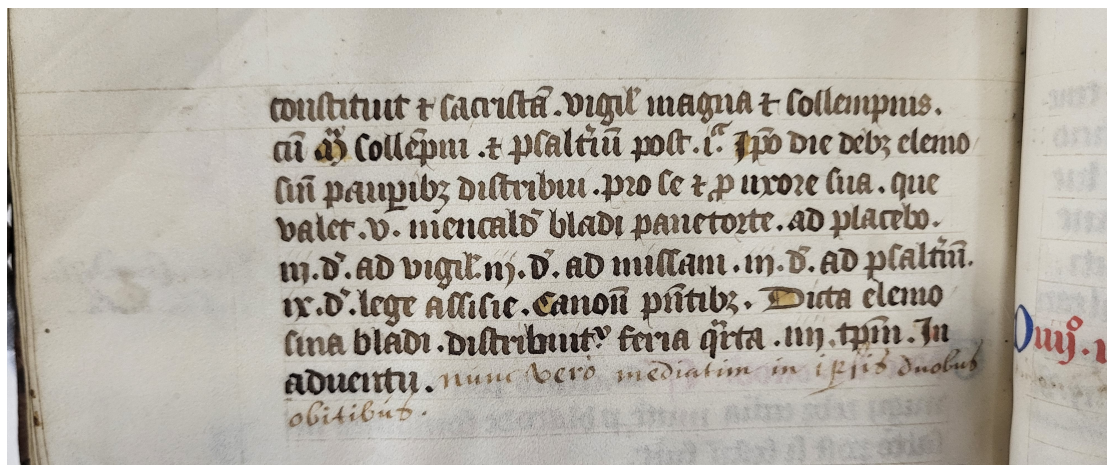 constituit ⁊ sacristā. vigil̛ magna ⁊ sollempnis.
cū sollēpni .⁊ psalt̛iū post. .i.ͣ Ip̄o die debꝫ elemo
sin̄ paup̲ibꝫ distribui . pro se ⁊ ꝓ uxore sua . que
valet .v. mencald̛ bladi panetorte . ad placebo .
iij. d̛. ad vigil̛. iij. d̛. ad missam . iij. d̛. ad psalt̛iū.
ix. d̛. lege assisie . Canon̄ p̄sētibꝫ . Dicta elemo
sina bladi . distribuit᷑ feria q̛rta .iiij. tp̄m . In
aduentu . nunc vero mediatim in ip̄sis duobus
obitibus .
Duiꝰ.